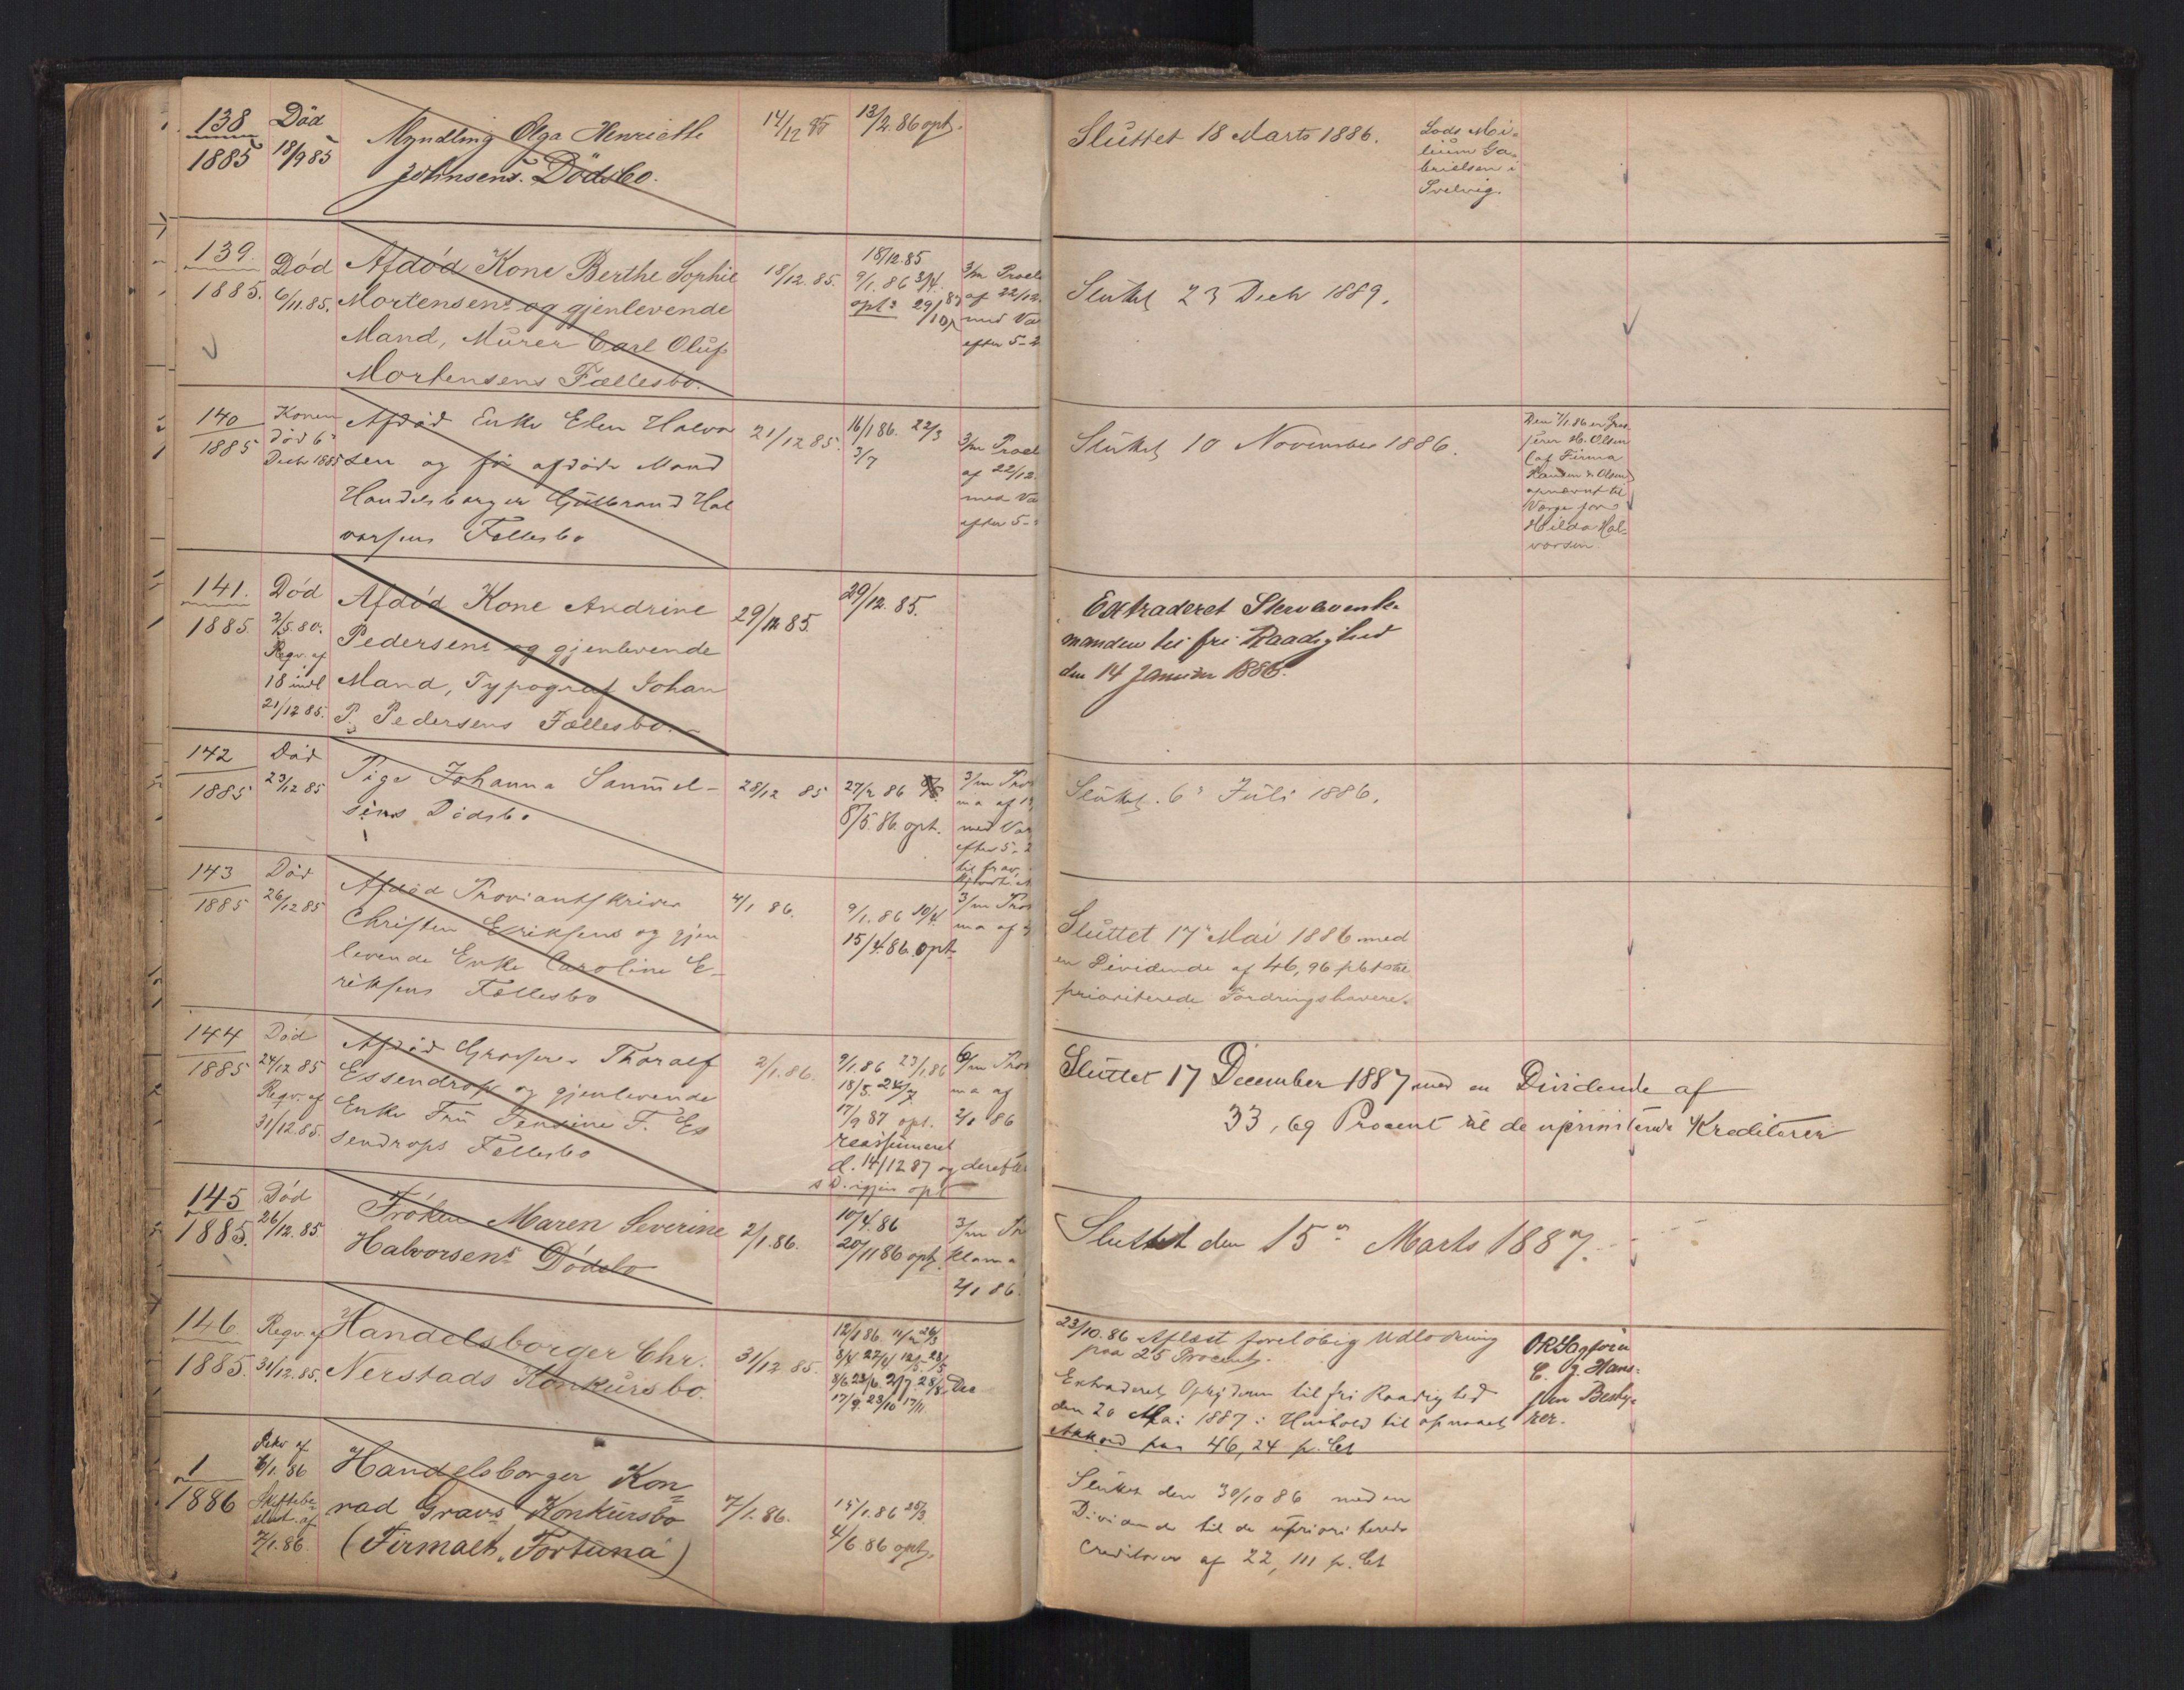 138
1885
Död
18/9 85
Myndling Olga Henriette
Johnsens Dödsbo.
14/12 85
13/2.86 opt.
Sluttet 18 Marts 1886.
Lods
Ga-
brielsen i
Svelvig.
139.
1885.
Död
6/11.85.
Afdöd Kone Berthe Sophie
Mortensens og gjenlevende
Mand, Murer Carl Oluf
Mortensens Fællesbo.
18/12.85.
18/12.85
9/1.86 3/4.
opt
3/m Procl
af 22/12.
med Va
efter 5-2
Sluttet 23 Decbr 1889.
140
1885
Konen
död 6
Decbr 1885
Afdöd Enke Elen Halvor
sen og för afdöde Mand
Handelsborger Gulbrand Hal
vorsens Fællesbo
21/12 85.
16/1 86. 22/3
3/7
3/m Procl
af 22/12.
med Va
efter 5-
Sluttet 10 November 1886.
Den 7/1.86 er Gros-
serer H. Olsen
(af Firma
Hansen & Olsen)
opnævnt til
Værge for
Hilda Hal-
vorsen
141.
1885.
Död
2/5.80.
Reqv. af
18 indl
21/12 85.
Afdöd Kone Andrine
Pedersens og gjenlevende
Mand, Typograf Johan
P. Pedersens Fællesbo.
29/12 85.
29/12.85.
Extraderet
manden til fri Raadighed
den 14 Januar 1886.
142
1885
Död
23/12 85
Pige Johanna Samuel-
sens Dödsbo
28/12 85
27/2 86
8/5.86. opt.
3/m Proc
ma af
med Var
efter 5-2
Sluttet. 6 Juli 1886.
143
1885
Död
26/12 85
Afdöd Proviantskriver
Christen Eriksens og gjen
levende Enke Caroline E-
riksens Fællesbo
4/1 86.
9/1.86 10/4
15/4.86. opt.
3/m Proc
ma af
Sluttet 17 Mai 1886 med
en Dividende af 46,96 pCt
prioriterede Fordringshavere.
144
1885
Död
24/12 85
Reqv. af
31/12.85.
Afdöd Grosserer Thoralf
Essendrop og gjenlevende
Enke Fru Jensine F. Es
sendrops Fællesbo
2/1.86.
9/1.86 23/1.86
18/5. 24/7
17/9 87 opt.
reassumeret
d. 14/12 87 og derefter
s.D. igjen opt
6/m Proc
ma af
2/1 86
Sluttet 17 December 1887 med en Dividende af
33,69 Procent til de uprioriterede Kreditorer
145
1885.
Död
26/12.85.
Fröken Maren Severine
Halvorsens Dödsbo
2/1.86.
10/4.86
20/11 86 opt.
3/m Pro
klama
2/1 86.
Sluttet den 15 Marts 1887.
146
1885.
Reqv. af
31/12.85.
Handelsborger Chr.
Nerstads Konkursbo.
31/12 85.
12/1 86.
8/4 27/4
8/6 23/6
17/9. 23/10 17/11.
23/10.86 Aflæst foreløbig Udlodning
paa 25 Procent.
Extraderet Opbydern til fri Raadighed
den 20 Mai 1887 i Henhold til opnaaet
Akkord paa 46,24 p. Ct
ORSagförer
C. G. Han-
sen Besty-
rer.
1
1886
Rekv af
6/1.86
Skiftebe-
slut. af
7/1.86.
Handelsborger Kon-
rad Gravs Konkursbo
(Firmaet „Fortuna")
7/1.86.
15/1.86 25/3
4/6.86 opt.
Sluttet den 30/10 86 med en
Dividende til de uprioriterede
Creditorer af 22,111 p. Ct